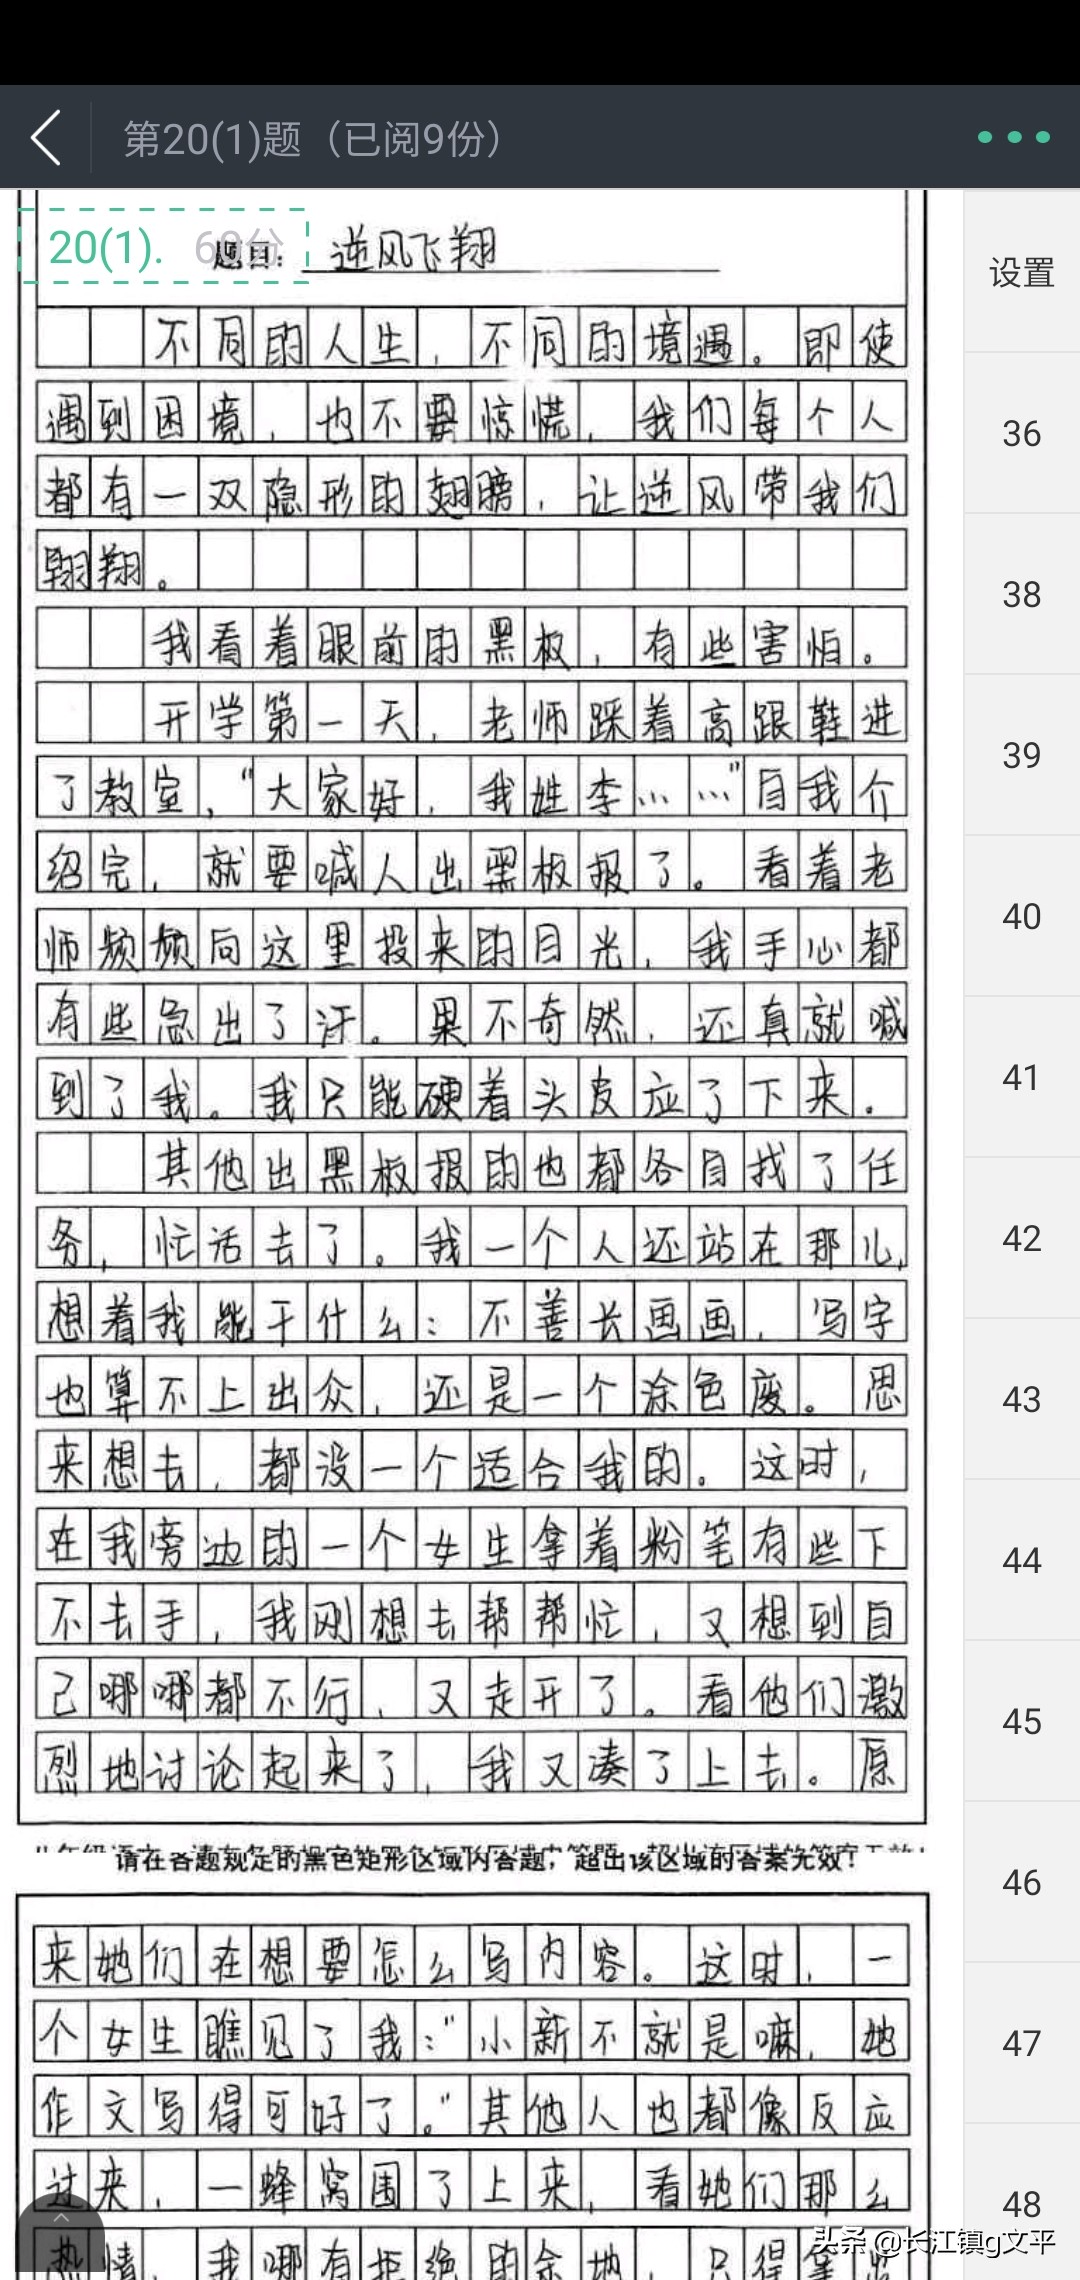 第20(1)题（已阅9份）
设置
36
38
39
40
41
42
43
44
45
46
47
48
20(1). 60分
题目： 逆风飞翔
不同的人生，不同的境遇。即使
遇到困境，也不要惊慌，我们每个人
都有一双隐形的翅膀，让逆风带我们
翱翔。
我看着眼前的黑板，有些害怕。
开学第一天，老师踩着高跟鞋进
了教室，“大家好，我姓李……”自我介
绍完，就要喊人出黑板报了。看着老
师频频向这里投来的目光，我手心都
有些急出了汗。果不奇然，还真就喊
到了我。我只能硬着头皮应了下来。
其他出黑板报的也都各自找了任
务，忙活去了。我一个人还站在那儿，
想着我能干什么：不善长画画，写字
也算不上出众，还是一个涂色废。思
来想去，都没一个适合我的。这时，
在我旁边的一个女生拿着粉笔有些下
不去手，我刚想去帮帮忙，又想到自
己哪哪都不行，又走开了。看他们激
烈地讨论起来了，我又凑了上去。原
请在各题规定的黑色矩形区域内答题，超出该区域的答案无效！
来她们在想要怎么写内容。这时，一
个女生瞧见了我：“小新不就是嘛，她
作文写得可好了。”其他人也都像反应
过来，一蜂窝围了上来，看她们那么
热情，我哪有拒绝的余地，只得拿出
头条 @长江镇g文平